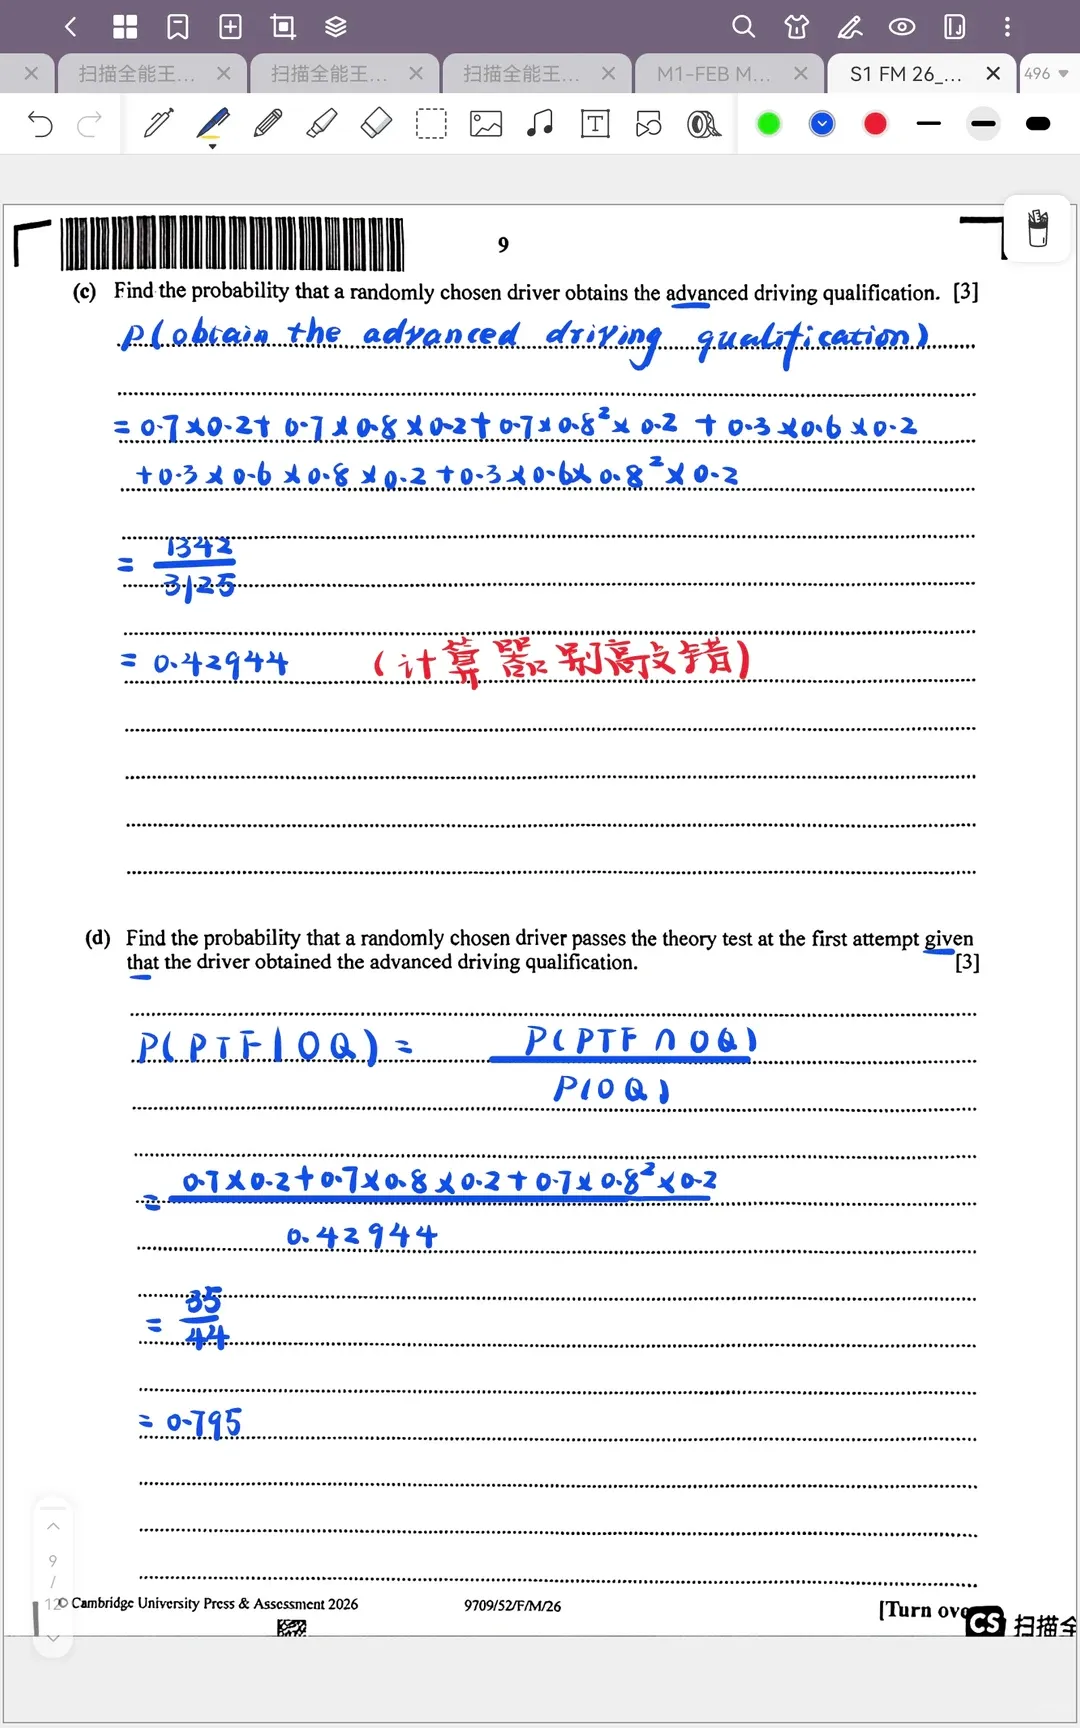 扫描全能王...
扫描全能王...
扫描全能王...
M1-FEB M...
S1 FM 26_...
496
9
(c) Find the probability that a randomly chosen driver obtains the advanced driving qualification. [3]
P(obtain the advanced driving qualification)
= 0.7×0.2+ 0.7×0.8×0.2+0.7×0.8²×0.2 + 0.3×0.6×0.2
+0.3×0.6×0.8×0.2+0.3×0.6×0.8²×0.2
= 1342/3125
= 0.42944 (计算器别敲错)
(d) Find the probability that a randomly chosen driver passes the theory test at the first attempt given
that the driver obtained the advanced driving qualification. [3]
P(PTF|OQ) = P(PTF∩OQ)/P(OQ)
= 0.7×0.2+0.7×0.8×0.2+0.7×0.8²×0.2
0.42944
= 35/44
= 0.795
9
/
12
© Cambridge University Press & Assessment 2026 9709/52/F/M/26 [Turn ove
CS 扫描全